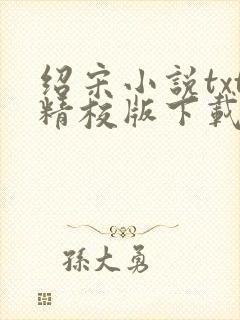 绍宋小説txt
精校版下載
孫大勇